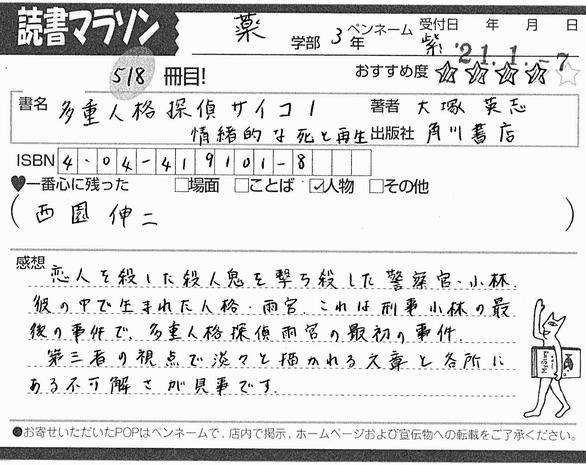 読書マラソン
薬 学部 3年 ペンネーム 紫 受付日 年 月 日
'21.1.-7
518 冊目! おすすめ度 ☆☆☆☆☆
書名 多重人格探偵サイコ1 著者 大塚英志
情緒的な死と再生 出版社 角川書店
ISBN 4-04-419101-8
♥一番心に残った □場面 □ことば ☑人物 □その他
( 西園伸二 )
感想
恋人を殺した殺人鬼を撃ち殺した警察官・小林.
彼の中で生まれた人格・雨宮. これは刑事小林の最
後の事件で、多重人格探偵雨宮の最初の事件.
第三者の視点で淡々と描かれる文章と各所に
ある不可解さが見事です.
●お寄せいただいたPOPはペンネームで、店内で掲示、ホームページおよび宣伝物への転載をご了承ください。